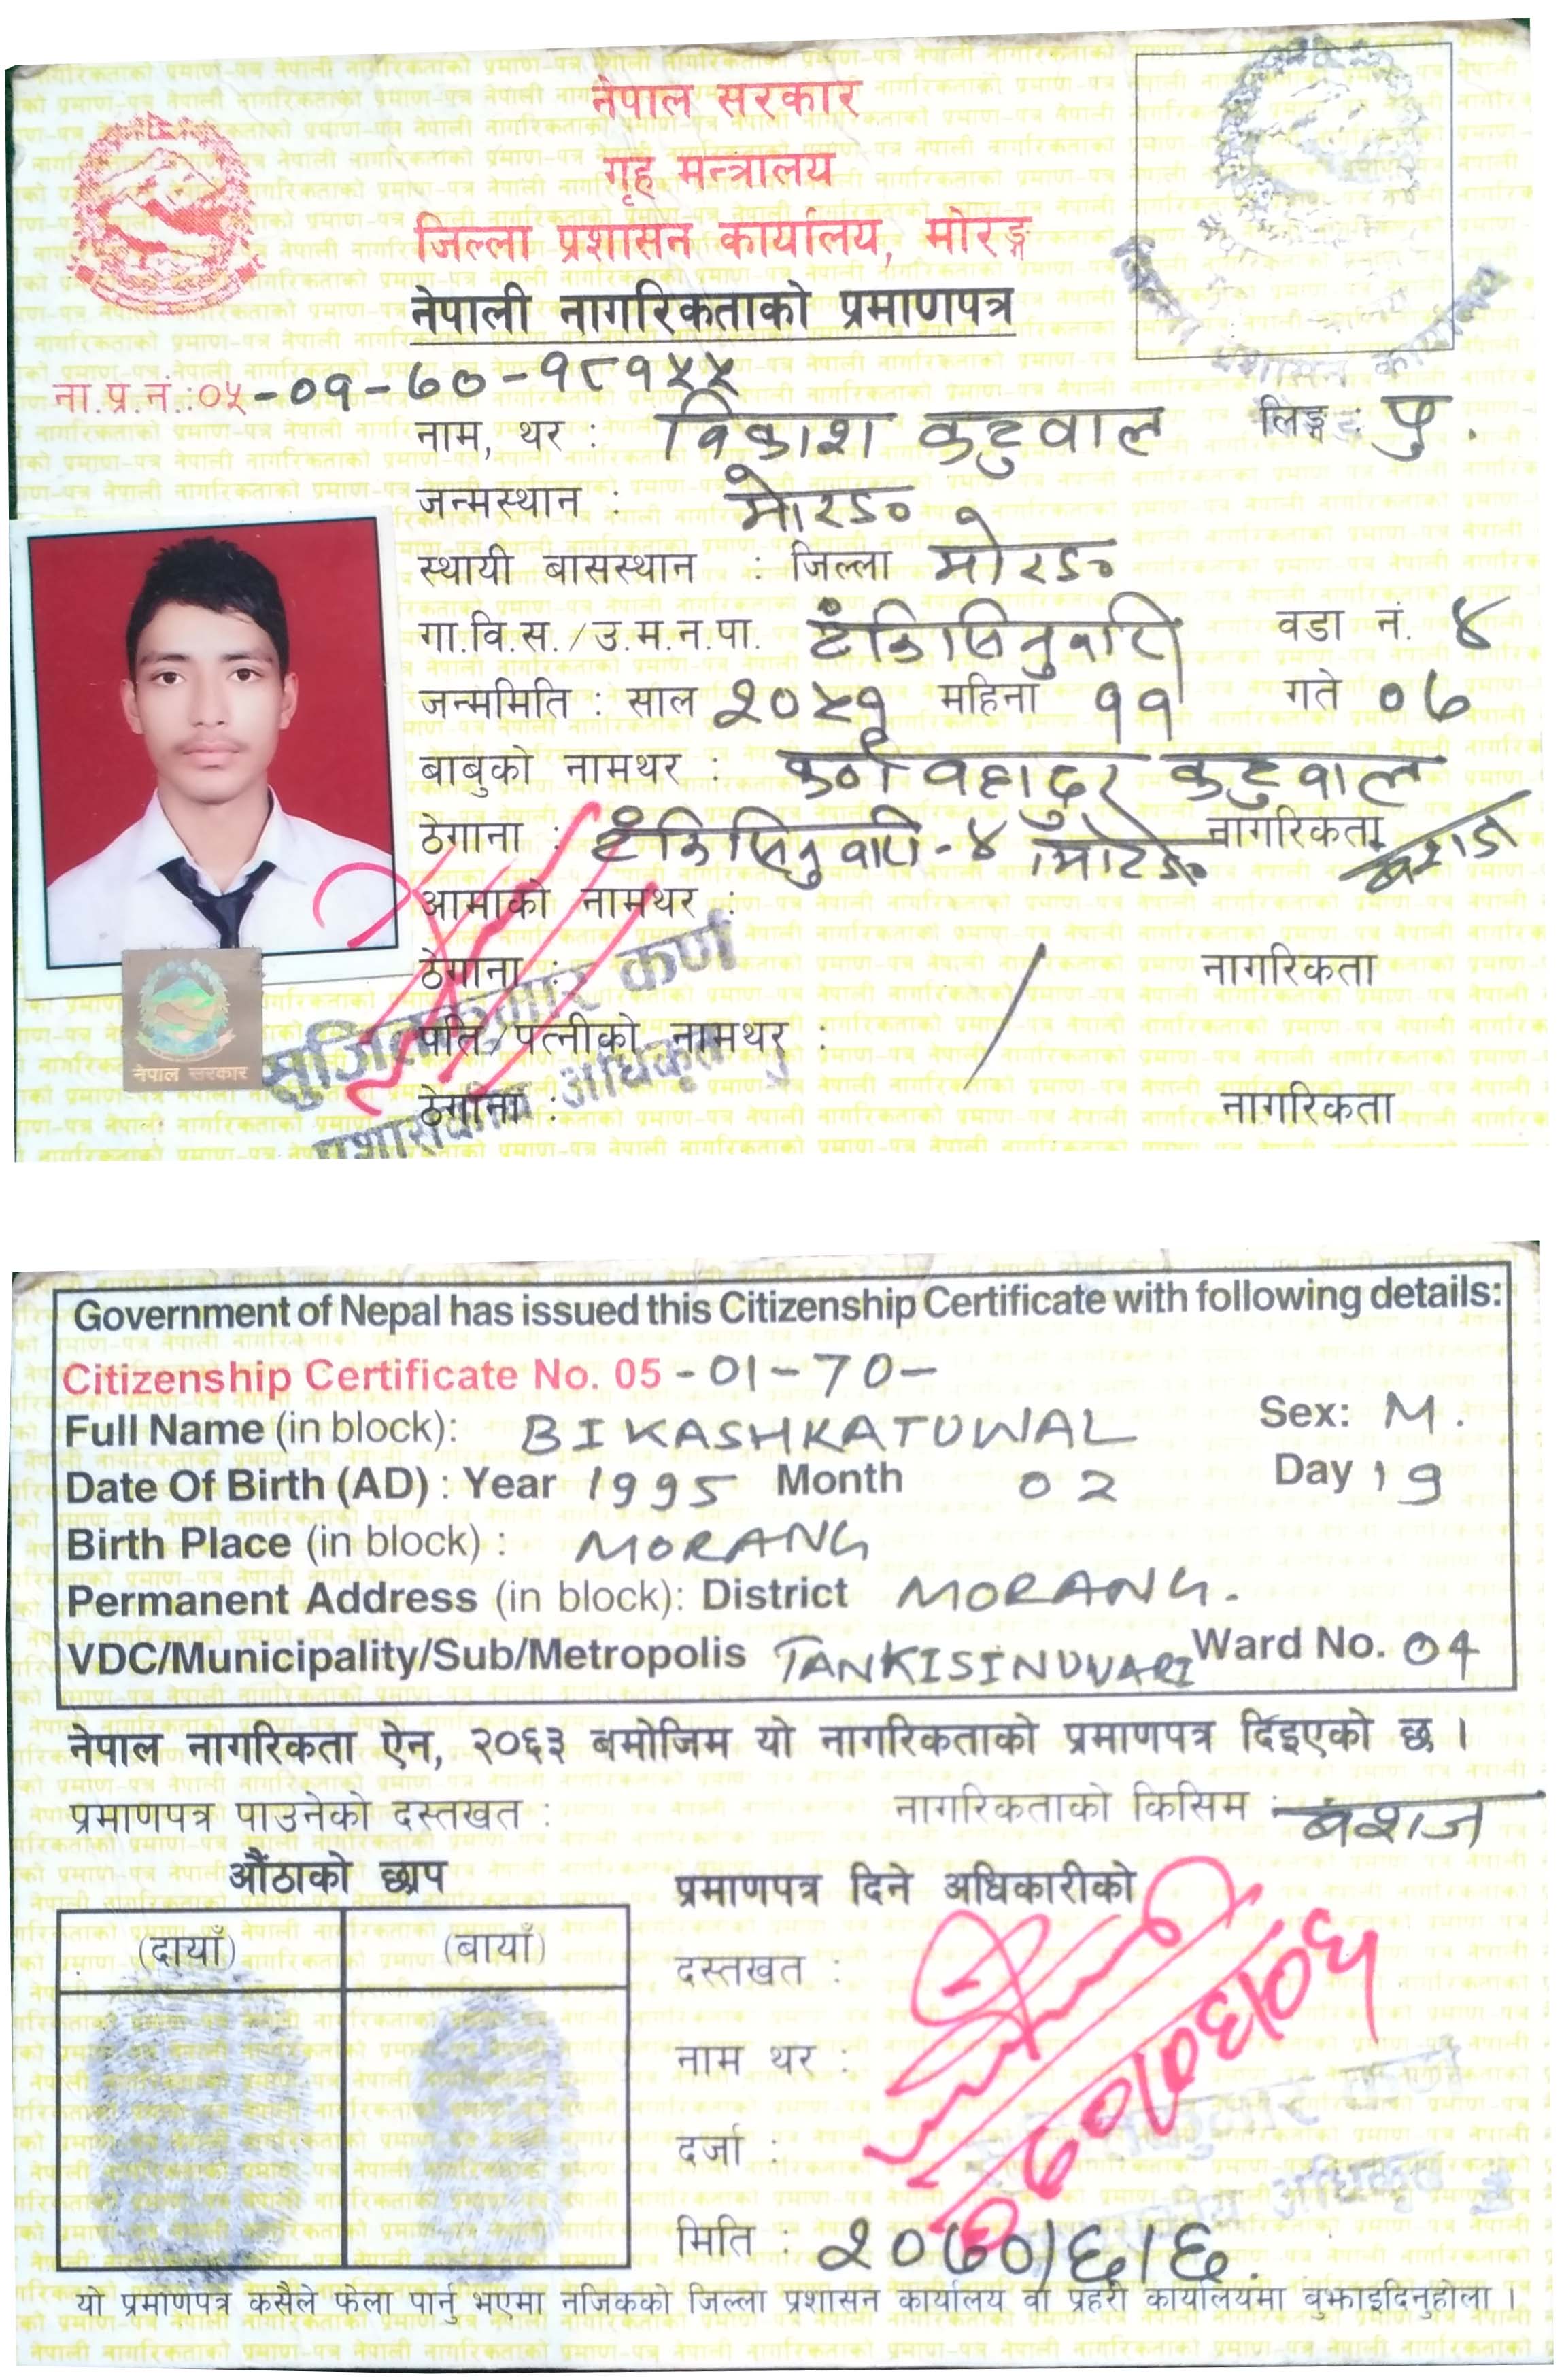 नेपाल सरकार
गृह मन्त्रालय
जिल्ला प्रशासन कार्यालय, मोरङ्ग
नेपाली नागरिकताको प्रमाणपत्र
जिल्ला प्रशासन कार्यालय
ना.प्र.नं.:०५-०१-७०-१८१५५
नाम, थर : विकाश कटुवाल लिङ्ग : पु.
जन्मस्थान : मोरङ
स्थायी बासस्थान : जिल्ला मोरङ
गा.वि.स./उ.म.न.पा. टंकिसिनुवारी वडा नं. ४
जन्ममिति : साल २०५१ महिना ११ गते ०७
बाबुको नामथर : कर्ण बहादुर कटुवाल
ठेगाना : टंकिसिनुवारी-४ मोरङ नागरिकता
आमाको नामथर :
ठेगाना : नागरिकता
पति/पत्नीको नामथर :
ठेगाना : नागरिकता
नेपाल सरकार
सुजित कुमार कर्ण
प्रशासकीय अधिकृत
Government of Nepal has issued this Citizenship Certificate with following details:
Citizenship Certificate No. 05-01-70-
Full Name (in block): BIKASHKATUWAL Sex: M.
Date Of Birth (AD) : Year 1995 Month 02 Day 19
Birth Place (in block) : MORANG
Permanent Address (in block): District MORANG.
VDC/Municipality/Sub/Metropolis TANKISINUWARI Ward No. 04
नेपाल नागरिकता ऐन, २०६३ बमोजिम यो नागरिकताको प्रमाणपत्र दिइएको छ ।
प्रमाणपत्र पाउनेको दस्तखत : नागरिकताको किसिम : बंशज
औंठाको छाप
(दायाँ) (बायाँ)
प्रमाणपत्र दिने अधिकारीको
दस्तखत :
नाम थर :
दर्जा :
मिति : २०७०।६।६.
यो प्रमाणपत्र कसैले फेला पार्नु भएमा नजिकको जिल्ला प्रशासन कार्यालय वा प्रहरी कार्यालयमा बुझाइदिनुहोला ।